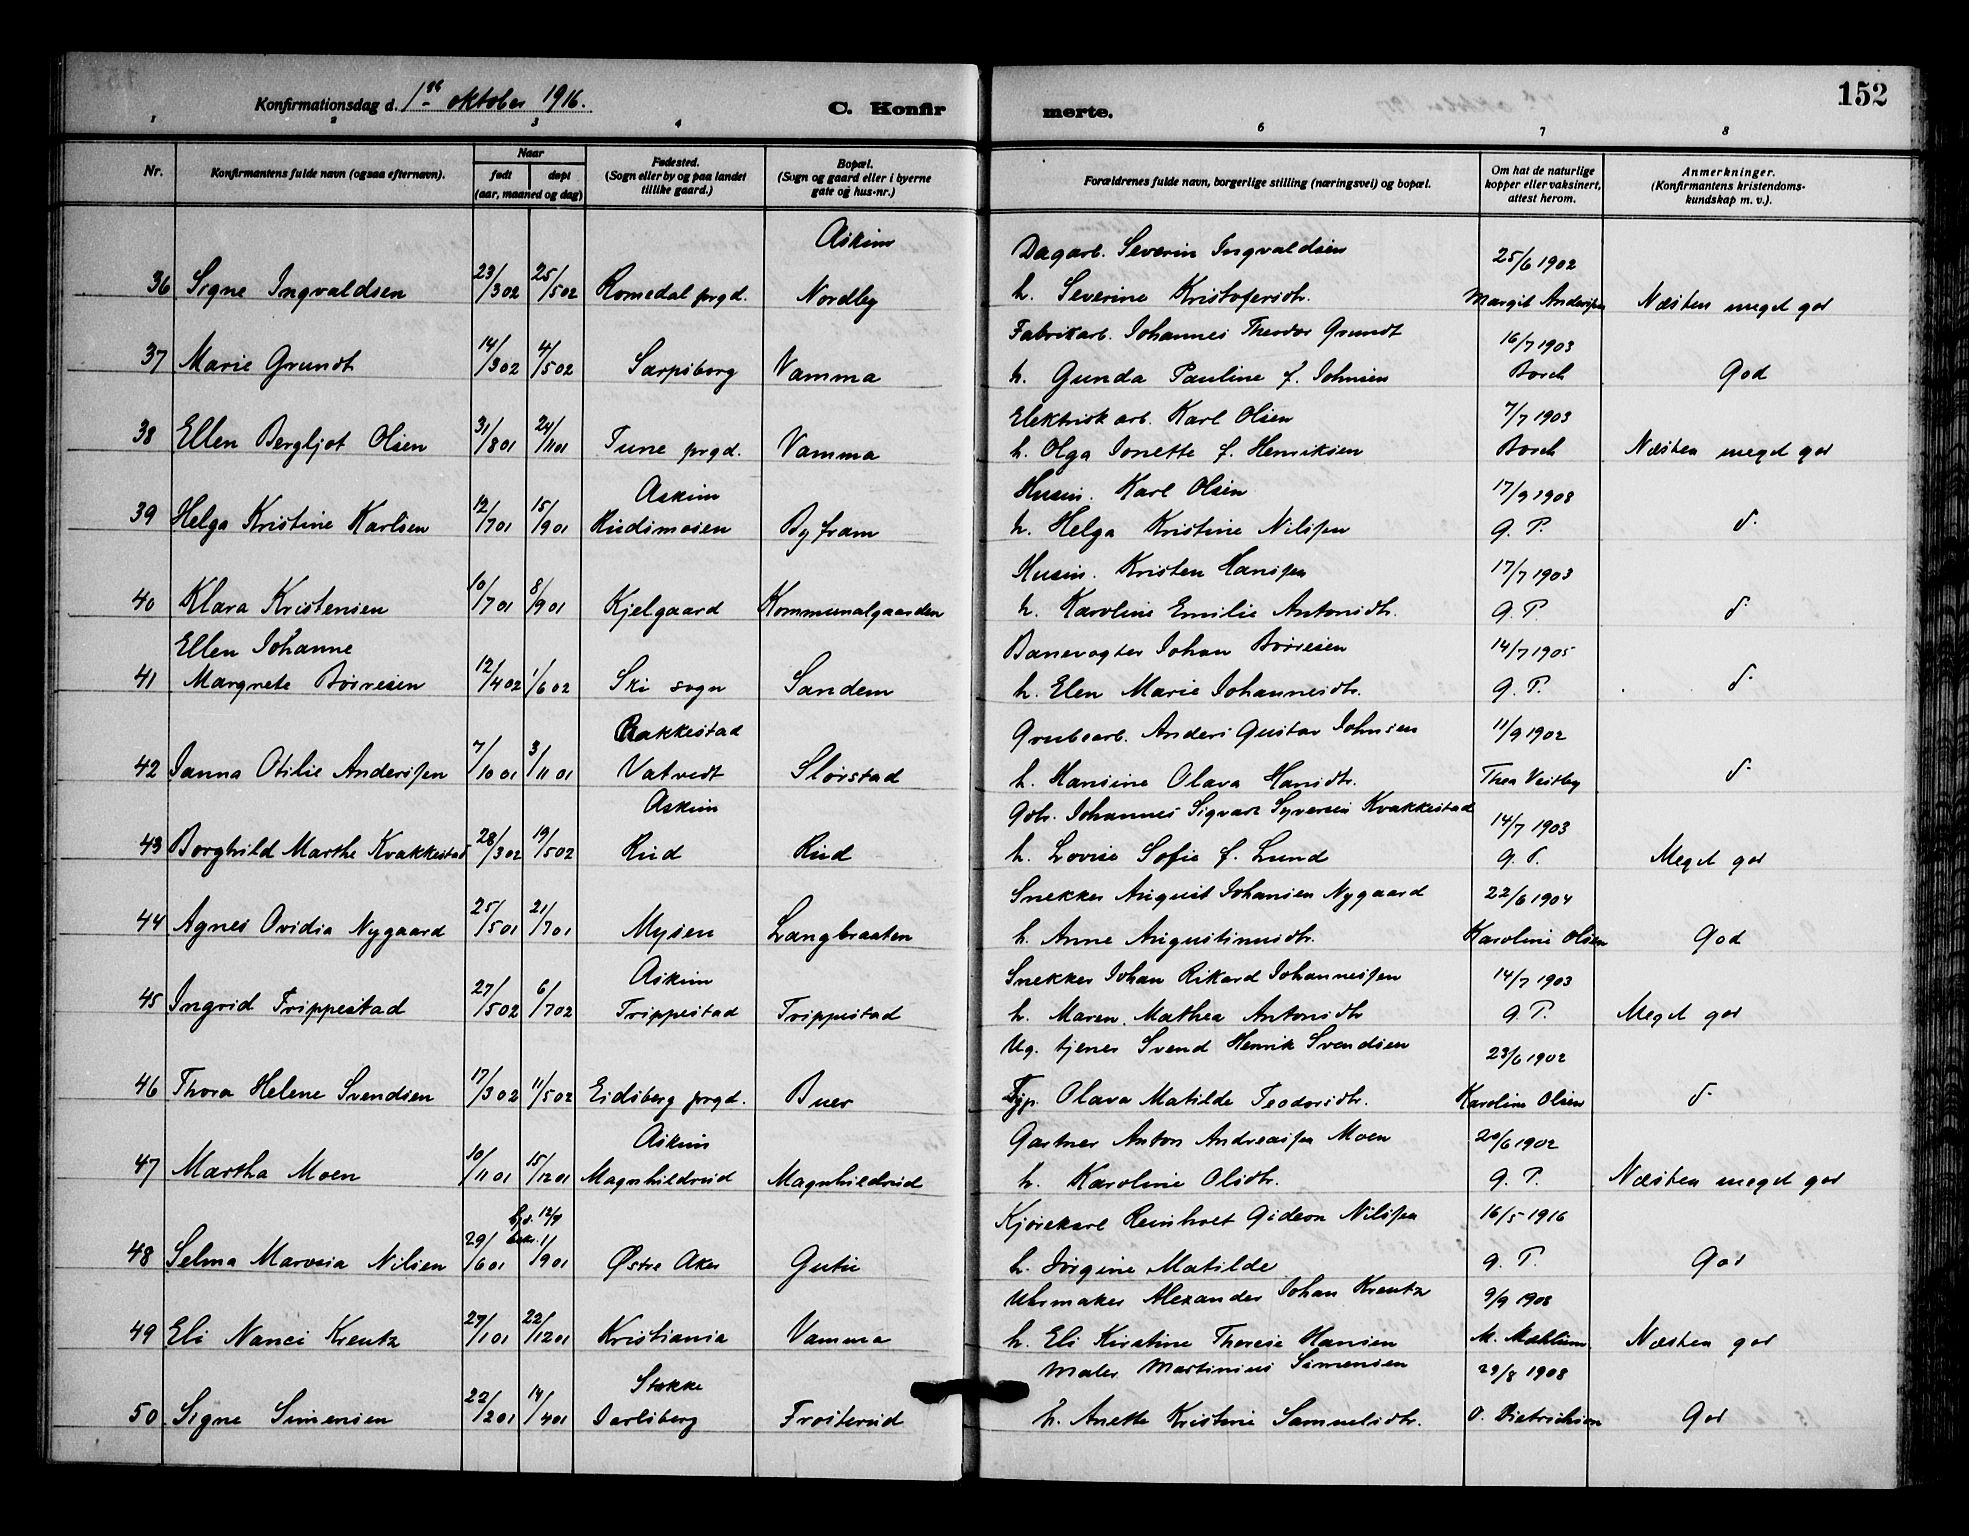 152
Konfirmationsdag d. 1ste oktober 1916.
C. Konfir
merte.
1 2 3 4 6 7 8
Nr.
Konfirmantens fulde navn (ogsaa efternavn).
Naar
født
døpt
(aar, maaned og dag)
Fødested.
(Sogn eller by og paa landet
tillike gaard.)
Bopæl.
(Sogn og gaard eller i byerne
gate og hus-nr.)
Forældrenes fulde navn, borgerlige stilling (næringsvei) og bopæl.
Om hat de naturlige
kopper eller vaksinert,
attest herom.
Anmerkninger.
(Konfirmantens kristendoms-
kundskap m. v.).
Askim Dagarb. Severin Ingvaldsen 25/6 1902
36 Signe Ingvaldsen 23/3 02 25/5 02 Romedal prgd. Nordby h. Severine Kristofersdtr. Margit Anderssen Næsten meget god
Fabrikarb. Johannes Theodor Grundt 16/7 1903
37 Marie Grundt 14/3 02 4/5 02 Sarpsborg Vamma h. Gunda Pauline f. Johnsen Borch God
Elektrisk arb. Karl Olsen 7/7 1903
38 Ellen Bergljot Olsen 31/8 01 24/11 01 Tune prgd. Vamma h. Olga Jonette f. Henriksen Borch Næsten meget god
Askim Husm. Karl Olsen 17/9 1908
39 Helga Kristine Karlsen 12/7 01 15/9 01 Rudsmosen By fram h. Helga Kristine Nilssen G. P. d.
Husm. Kristen Hanssen 17/7 1903
40 Klara Kristensen 10/7 01 8/9 01 Kjelgaard Kommunalgaarden h. Karoline Emilie Antonsdtr. G. P. d.
Ellen Johanne Banevogter Johan Børresen 14/7 1905
41 Margrete Børresen 12/4 02 1/6 02 Ski sogn Sandem h. Elen Marie Johannesdtr. G. P. d.
Rakkestad Grubearb. Anders Gustav Johnsen 11/9 1902
42 Janna Otilie Anderssen 7/10 01 3/11 01 Vatvedt Slørstad h. Hansine Olava Hansdtr. Thea Vestby d.
Askim Gbr. Johannes Sigvart Syversen Kvakkestad 14/7 1903
43 Borghild Marthe Kvakkestad 28/3 02 19/5 02 Rud Rud h. Lovise Sofie f. Lund G. P. Meget god
Snekker August Johansen Nygaard 22/6 1904
44 Agnes Ovidia Nygaard 25/5 01 21/7 01 Mysen Langbraaten h. Anne Augustinusdtr. Karoline Olsen God
Askim Snekker Johan Rikard Johannessen 14/7 1903
45 Ingrid Trippestad 27/5 02 6/7 02 Trippestad Trippestad h. Maren Mathea Antonsdtr G. P. Meget god
Ug. tjener Svend Henrik Svendsen 23/6 1902
46 Thora Helene Svendsen 17/3 02 11/5 02 Eidsberg prgd. Buer Tjp. Olava Matilde Teodorsdtr. Karoline Olsen d.
Askim Gartner Anton Andreassen Moen 20/6 1902
47 Martha Moen 10/11 01 15/12 01 Magnhildrud Magnhildrud h. Karoline Olsdtr. G. P. Næsten meget god
12/9 Kjørekarl Reinholt Gideon Nilssen 16/5 1916
48 Selma Marvsia Nilsen 29/6 01 1/9 01 Østre Aker Gutu h. Jørgine Matilde G. P. God
Uhrmaker Alexander Johan Kreutz 9/9 1908
49 Eli Nanci Kreutz 27/1 01 22/12 01 Kristiania Vamma h. Eli Kirstine Therese Hansen M. Mæhlum Næsten god
Stokke Maler Martinius Simensen 29/8 1908
50 Signe Simensen 22/2 01 14/4 01 Jarlsberg Frosterud h. Anette Kristine Samuelsdtr. O. Dietrichson God